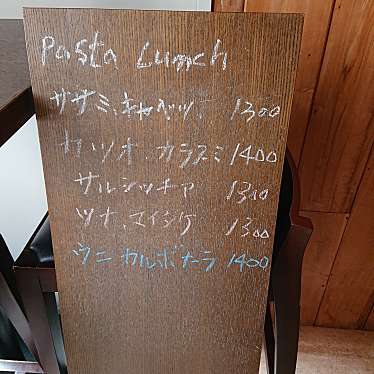 Pasta Lunch
ササミ、キャベツ、 1300
カツオ、カラスミ 1400
サルシッチァ 1300
ツナ、マイタケ 1300
ウニ カルボナーラ 1400